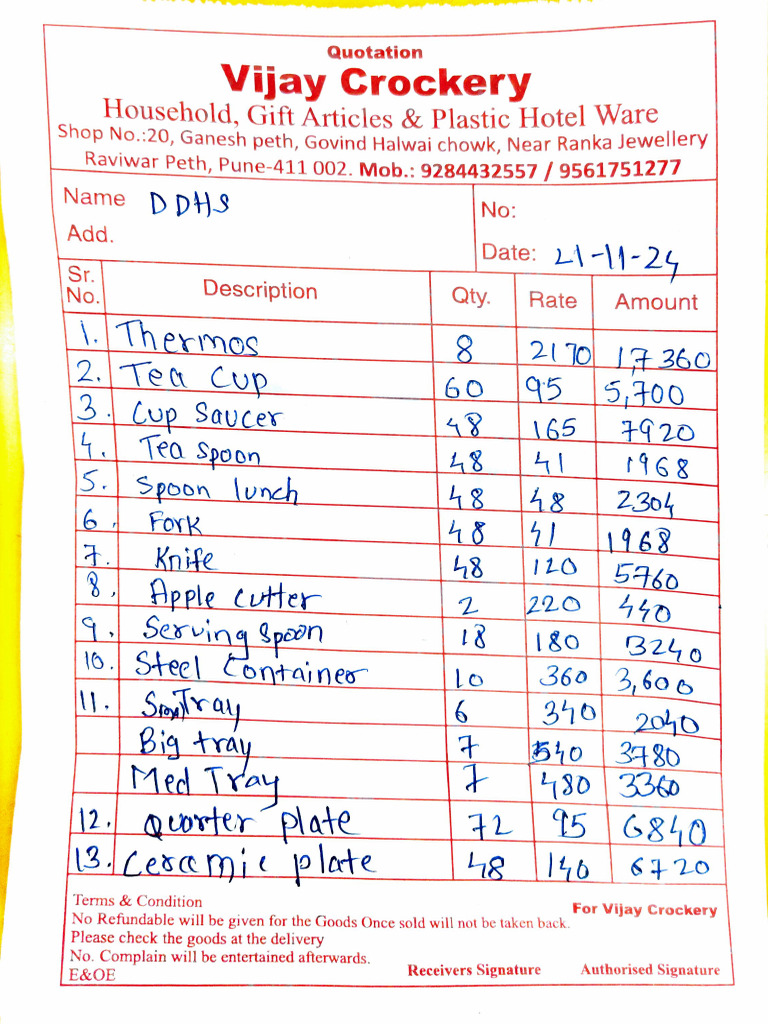 Quotation
Vijay Crockery
Household, Gift Articles & Plastic Hotel Ware
Shop No.:20, Ganesh peth, Govind Halwai chowk, Near Ranka Jewellery
Raviwar Peth, Pune-411 002. Mob.: 9284432557 / 9561751277
Name DDHS
Add.
No:
Date: 21-11-24
Sr. No. Description Qty. Rate Amount
1. Thermos 8 2170 17,360
2. Tea Cup 60 95 5,700
3. Cup Saucer 48 165 7920
4. Tea spoon 48 41 1968
5. Spoon lunch 48 48 2304
6. Fork 48 41 1968
7. Knife 48 120 5760
8. Apple cutter 2 220 440
9. Serving spoon 18 180 3240
10. Steel Container 10 360 3,600
11. Small Tray 6 340 2040
Big tray 7 540 3780
Med Tray 7 480 3360
12. Quarter plate 72 95 6840
13. Ceramic plate 48 140 6720
Terms & Condition
No Refundable will be given for the Goods Once sold will not be taken back.
Please check the goods at the delivery
No. Complain will be entertained afterwards.
E&OE
For Vijay Crockery
Receivers Signature Authorised Signature